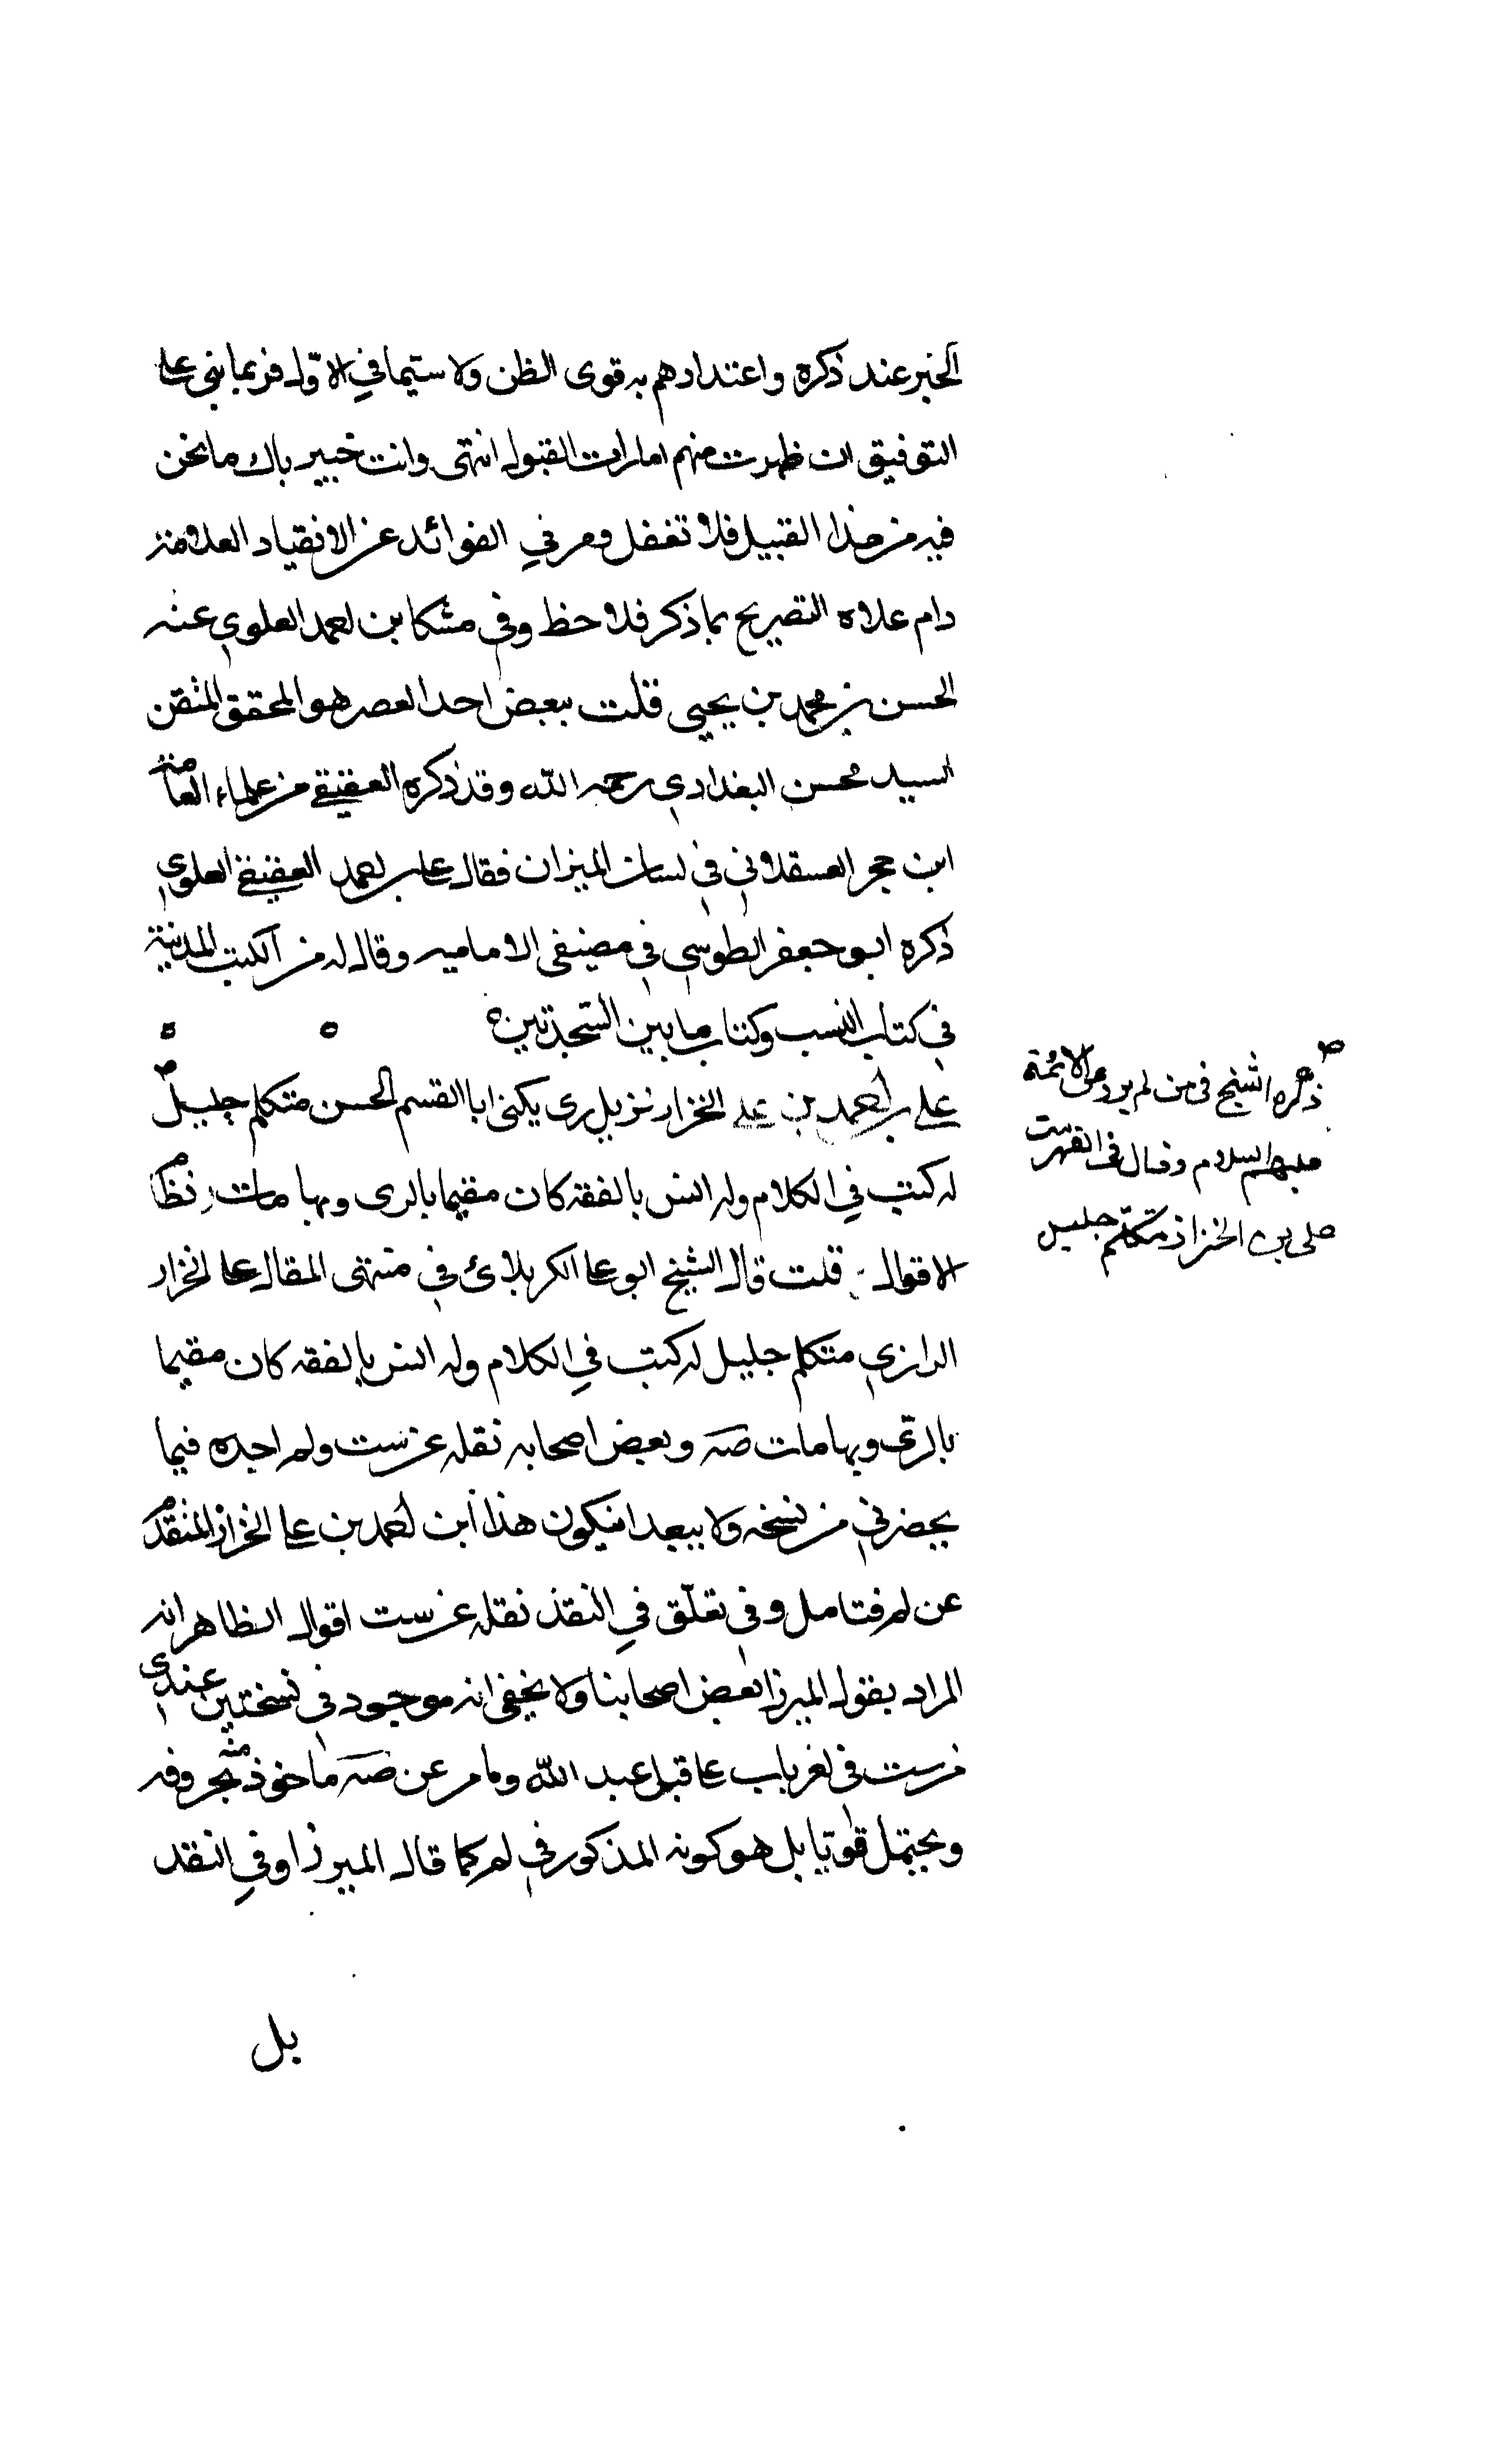 الخبر عند ذكره واعتدادهم به قوى الظن ولا سيما في الاول فربما بنى على
التوفيق ان ظهرت منهم امارات القبول انتهى وانت خبير باك ما نحن
فيه من هذا القبيل فلا تغفل ومر في الفوائد عن الانقياد العلامة
دام علاه التصريح بما ذكر فلاحظ وفي مشكا بن احمد العلوي عنه
الحسن بن محمد بن يحيى قلت ببعض احد العصر هو المحقق المتقن
السيد محسن البغدادي رحمه الله وقد ذكره العقيقي من علماء العامة
ابن حجر العسقلاني في لسان الميزان فقال على بن احمد العقيقي العلوي
ذكره ابو جعفر الطوسي في مصنفى الامامية وقال له من الكتب المدينة
في كتاب النسب وكتاب ما بين المسجدين ه ه ه
على بن احمد بن على الخزار نزيل رى يكنى ابا القسم الحسن متكلم جليل ص
له كتب في الكلام وله انس بالفقه كان مقيما بالرى وبها مات نظام
الاقوال قلت قال الشيخ ابو على الكربلائ في منتهى المقال على الخزار
الرازي متكلم جليل له كتب في الكلام وله انس بالفقه كان مقيما
بالرى وبها مات صه وبعض اصحابه نقله عن ست ولم اجده فيما
يحضرني من نسخه ولا يبعد ان يكون هذا ابن احمد بن على الخزاز المتقدم
عن لم فتامل وفي تعلق في النقد نقله عن ست اقول الظاهر انه
المراد بقول الميرزا بعض اصحابنا ولا يخفى انه موجود في نسختين عندي
من ست في اخر باب على قبل عبد الله وما مر عن صه ماخوذ منه بحروفه
ويحتمل قويا بل هو كونه المذكور في لم كما قال الميرزا وفي النقد
بل
ص
ذكره الشيخ في من لم يرو عن الائمة
عليهم السلام وقال في الفهرست
على بن الخزاز متكلم جليل